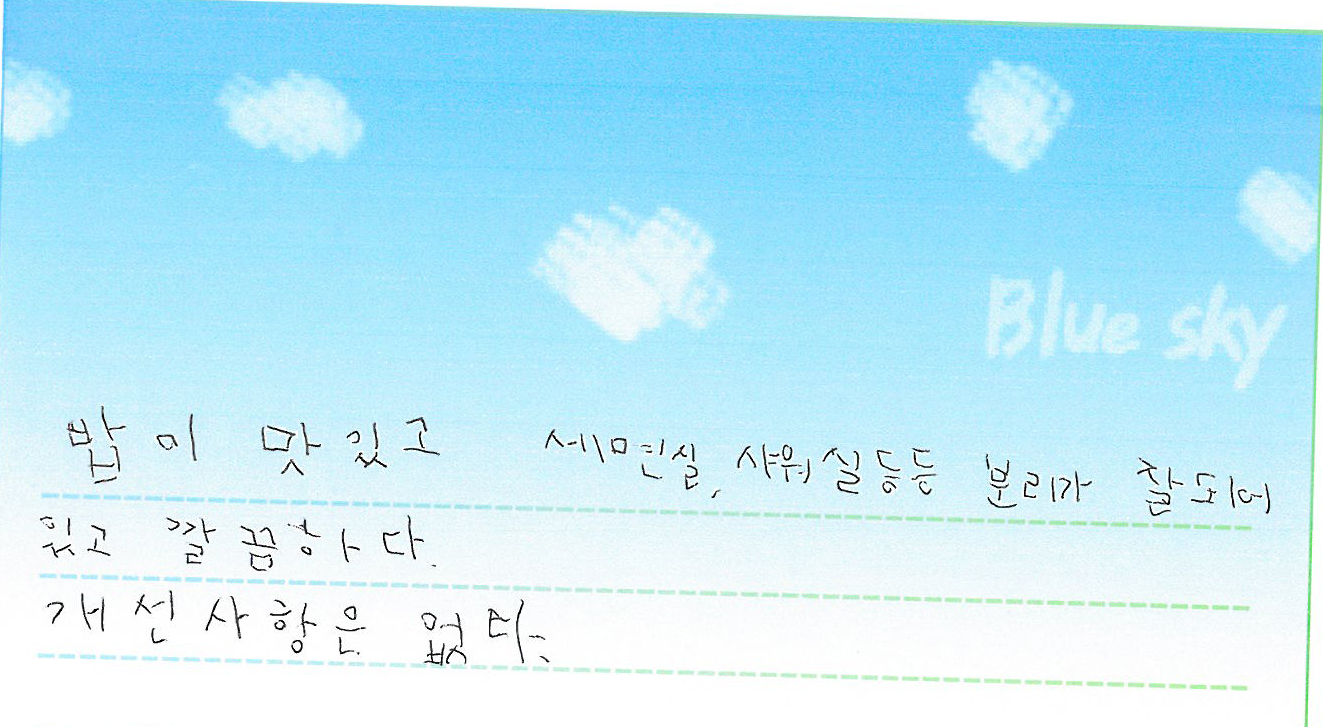 Blue sky
밥이 맛있고 세면실, 샤워실등등 분리가 잘되어
있고 깔끔하다.
개선사항은 없다.